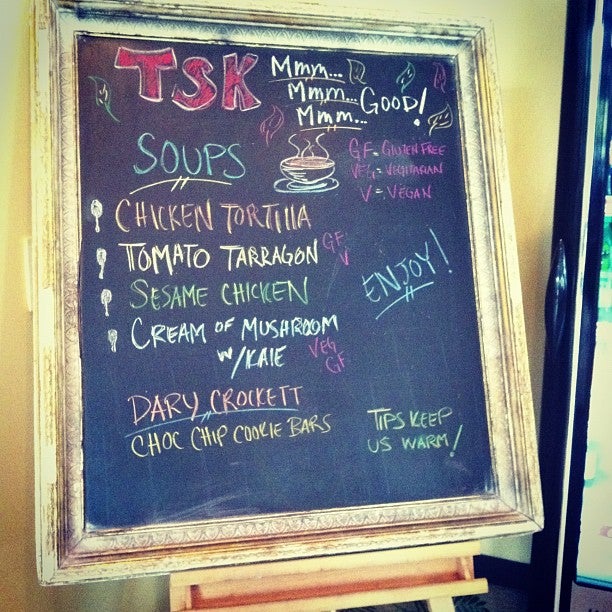 TSK
Mmm...
Mmm... GOOD!
Mmm...
SOUPS
GF = GLUTEN FREE
VEG = VEGITARIAN
V = VEGAN
CHICKEN TORTILLA
TOMATO TARRAGON GF V
SESAME CHICKEN
ENJOY!
CREAM OF MUSHROOM
W/KALE VEG GF
DARY CROCKETT
CHOC CHIP COOKIE BARS
TIPS KEEP
US WARM!